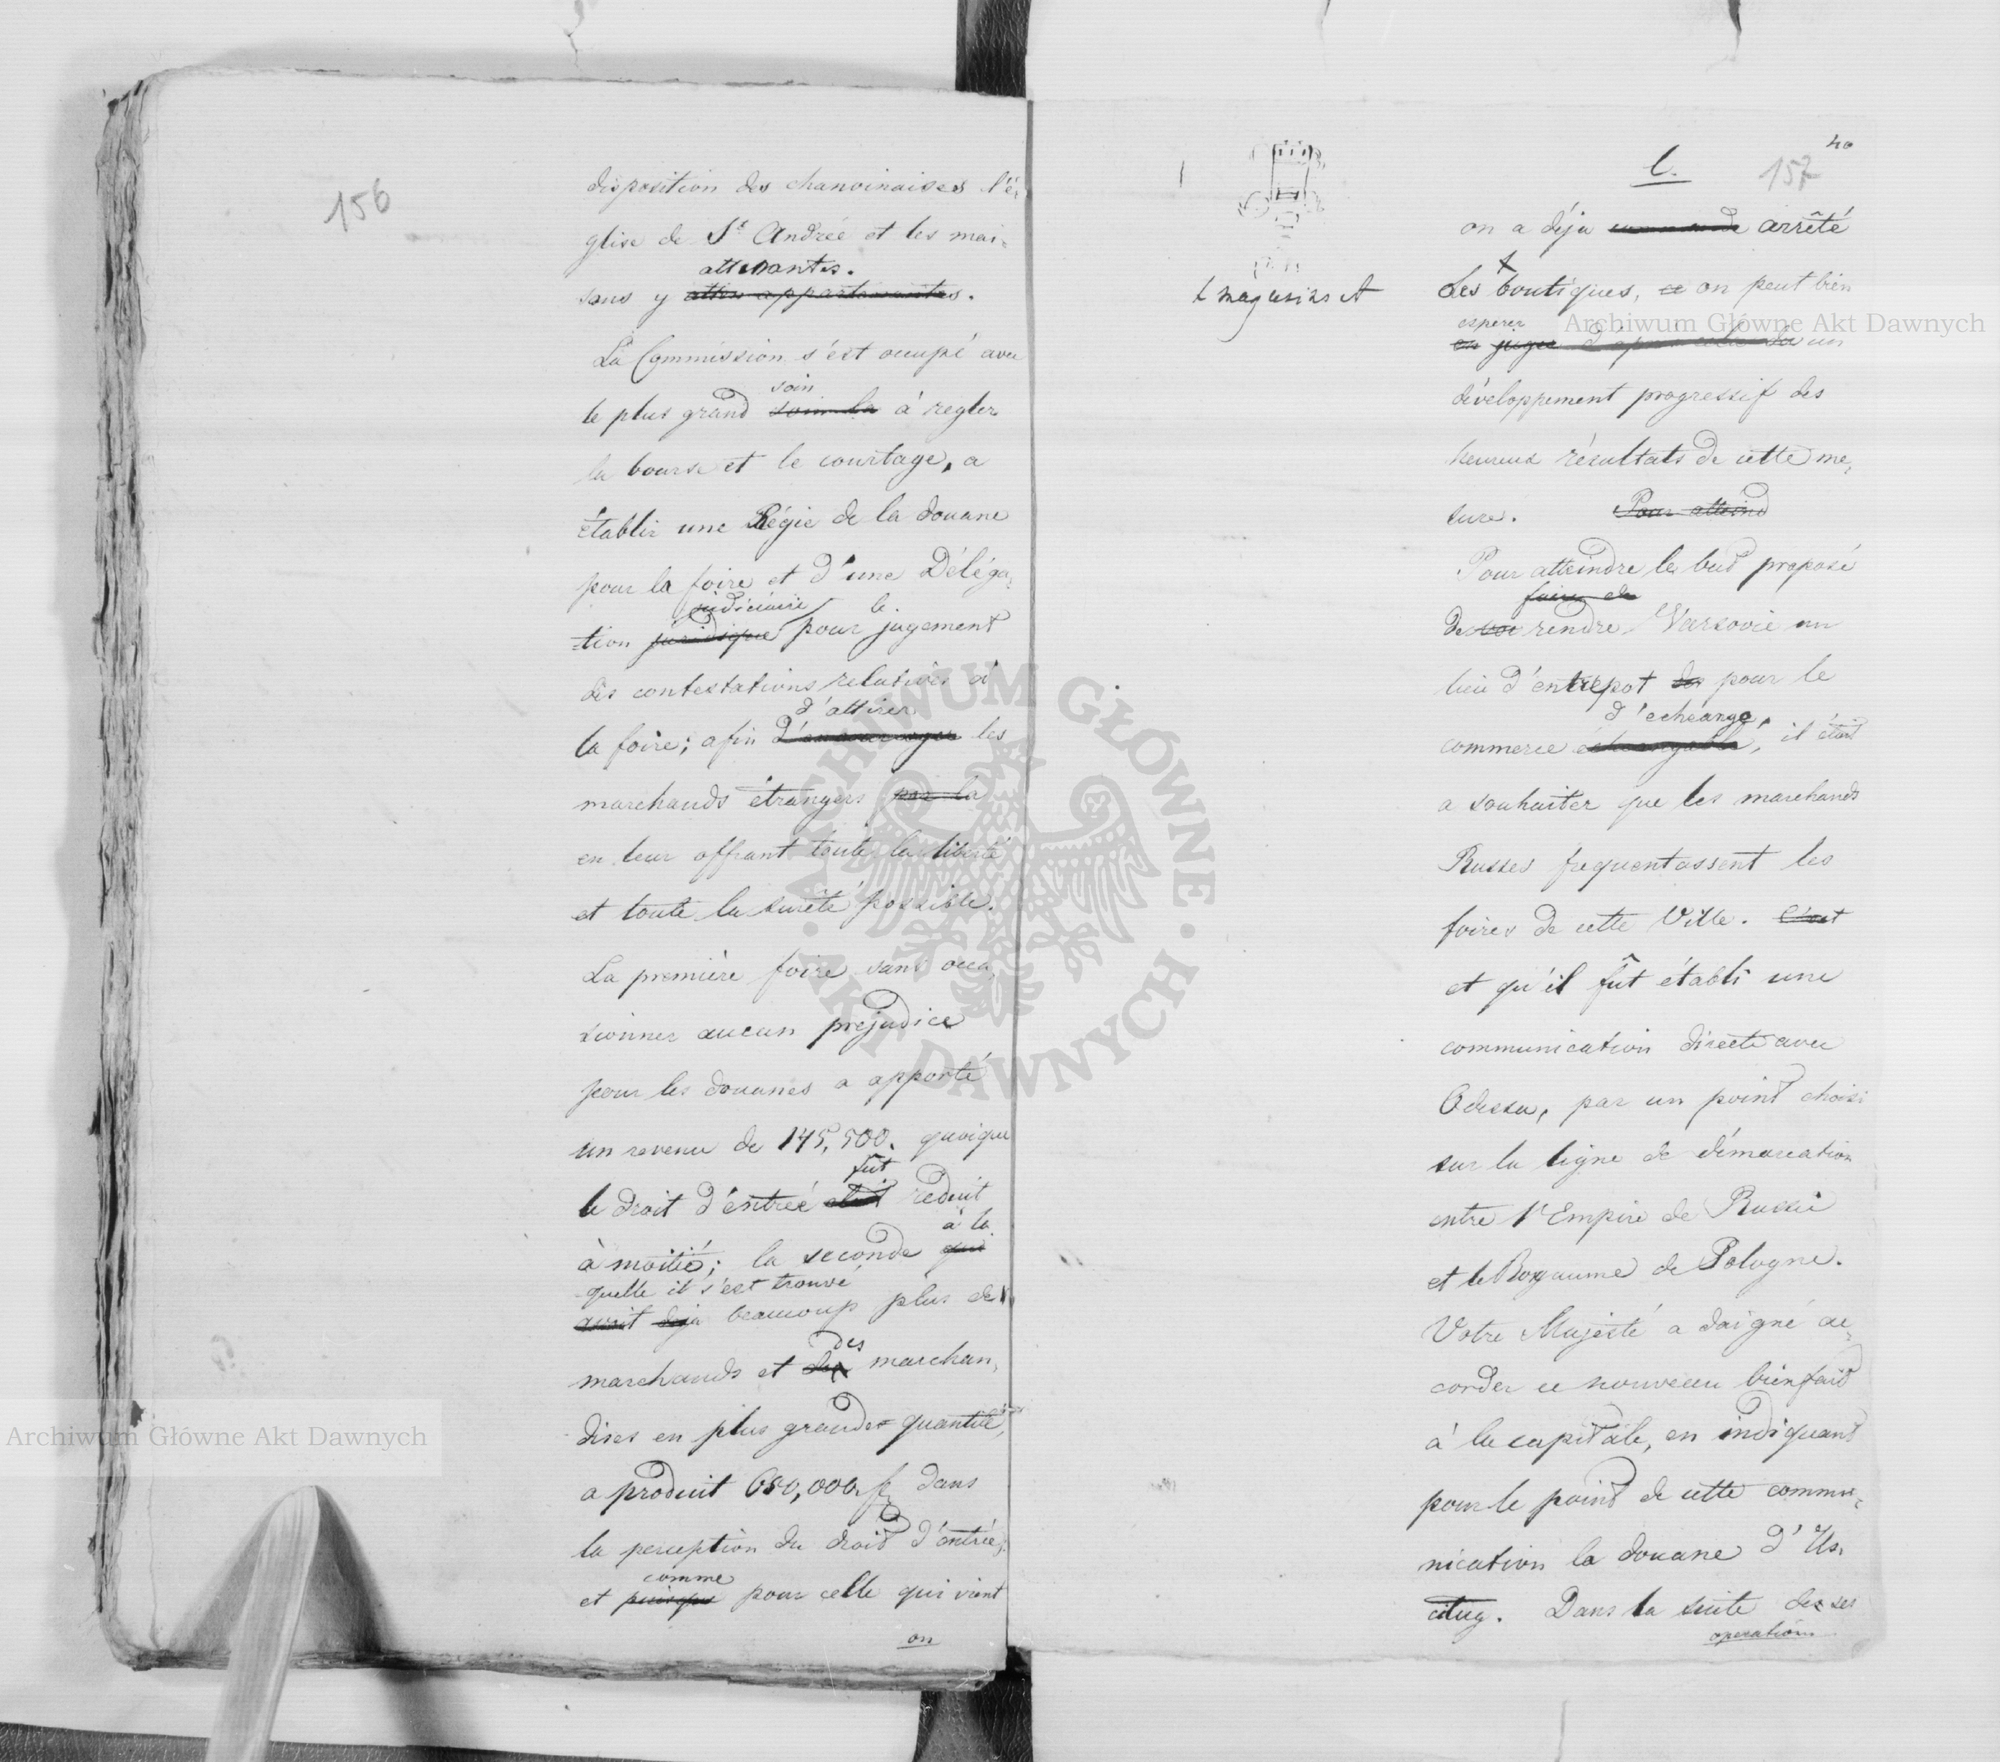 156
disposition des chanoinaises l'é-
glise de St Andrée et les mai-
attenantes.
sons y attes appartenantes.
La Commission s'est occupé avec
soin
le plus grand soin la à regler
la bourse et le courtage, a
établir une Régie de la douane
pour la foire et d'une Déléga-
judiciaire le
tion juridique pour jugement
des contestations relatives à
d'attirer
la foire; afin d'encourager les
marchands étrangers par la
en leur offrant toute la liberté
et toute la sureté possible.
La première foire sans occa-
sionner aucun prejudice
pour les douanes a apporté
un revenu de 145,500. quoique
fut
le droit d'entreé était reduit
à la
à moitié; la seconde qui
quelle il s'est trouvé
avoit deja beaucoup plus de
des
marchands et de marchan-
dises en plus grande quantité,
a produit 650,000 f dans
la perception du droit d'entrée,
comme
et puisque pour celle qui vient
on
40
l.
157
on a déja arrêté
t magasins et
Les boutiques, ce on peut bien
esperer
en juger d'après celle la un
développement progressif des
heureux résultats de cette me-
sure. Pour atteind
Pour atteindre le but proposé
faire de
de rendre Varsovie un
lieu d'entrepot des pour le
d'echeange,
commerce échangeable, il était
a souhaiter que les marchands
Russes frequentassent les
foires de cette Ville. C'est
et qu'il fût établi une
communication directe avec
Odessa, par un point choisi
sur la ligne de démarcation
entre l'Empire de Russie
et le Royaume de Pologne.
Votre Majesté a daigné ac-
corder ce nouveau bienfait
à la capitale, en indiquant
pour le point de cette commu-
nication la douane d'Us-
cilug. Dans la suite de ses
operations
Archiwum Główne Akt Dawnych
Archiwum Główne Akt Dawnych
ARCHIWUM GŁÓWNE · AKT DAWNYCH ·